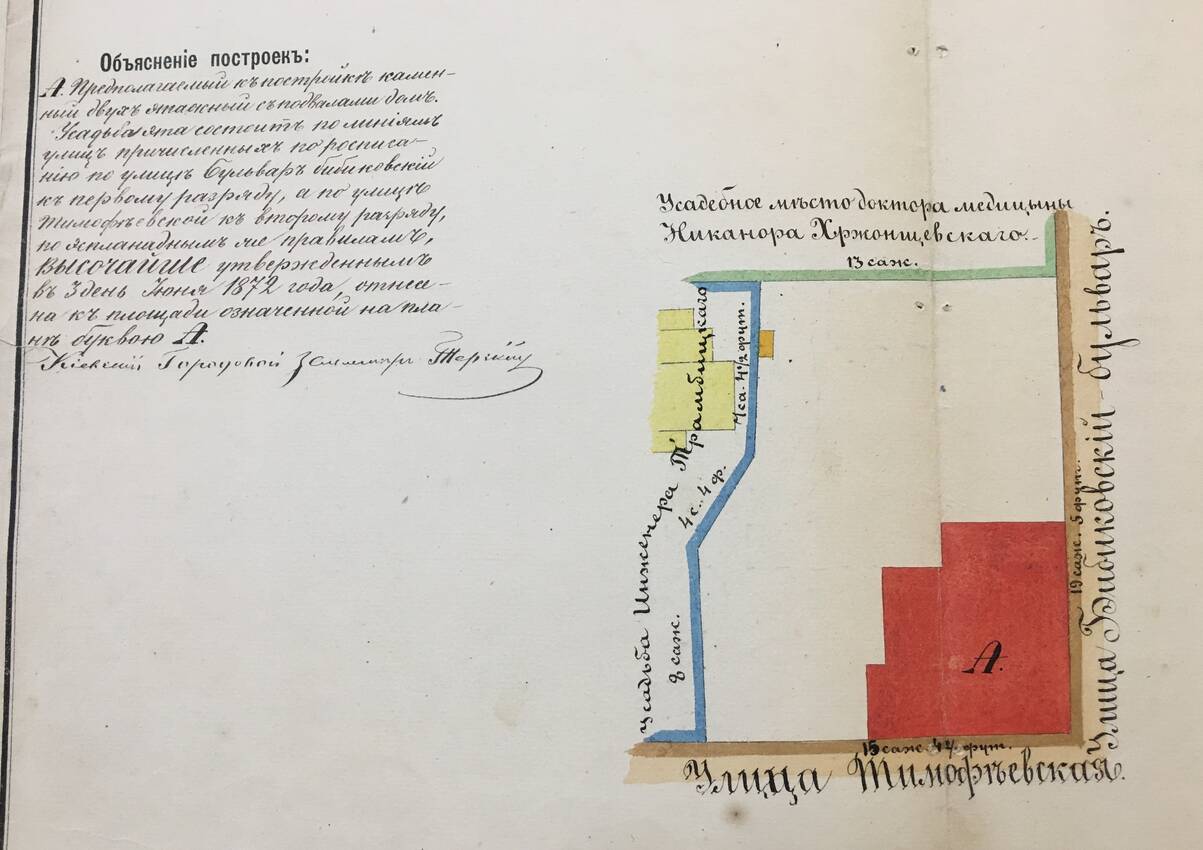 Объясненіе построекъ:
А. Предполагаемый къ постройкѣ камен-
ный двухъ этажный съ подвалами домъ.
Усадьба эта состоитъ по линіямъ
улицъ причисленныхъ по росписа-
нію по улицѣ Бульваръ бибиковскій
къ первому разряду, а по улицѣ
Тимофѣевской къ второму разряду,
по эспланаднымъ же правиламъ,
ВЫСОЧАЙШЕ утвержденнымъ
въ 3 день Іюня 1872 года, отнесе-
на къ площади означенной на пла-
нѣ буквою А.
Кіевскій Городовой Землемѣръ
Усадебное мѣсто доктора медицыны
Никанора Хржонщевскаго.
13 саж.
усадьба Инженера Трамбицкаго
7 са. 4½ фут.
4 с. 4 ф.
8 саж.
А.
19 саж. 5 фут.
Улица Бибиковскій-бульваръ.
15 саж. 4½ фут.
Улица Тимофѣевская.